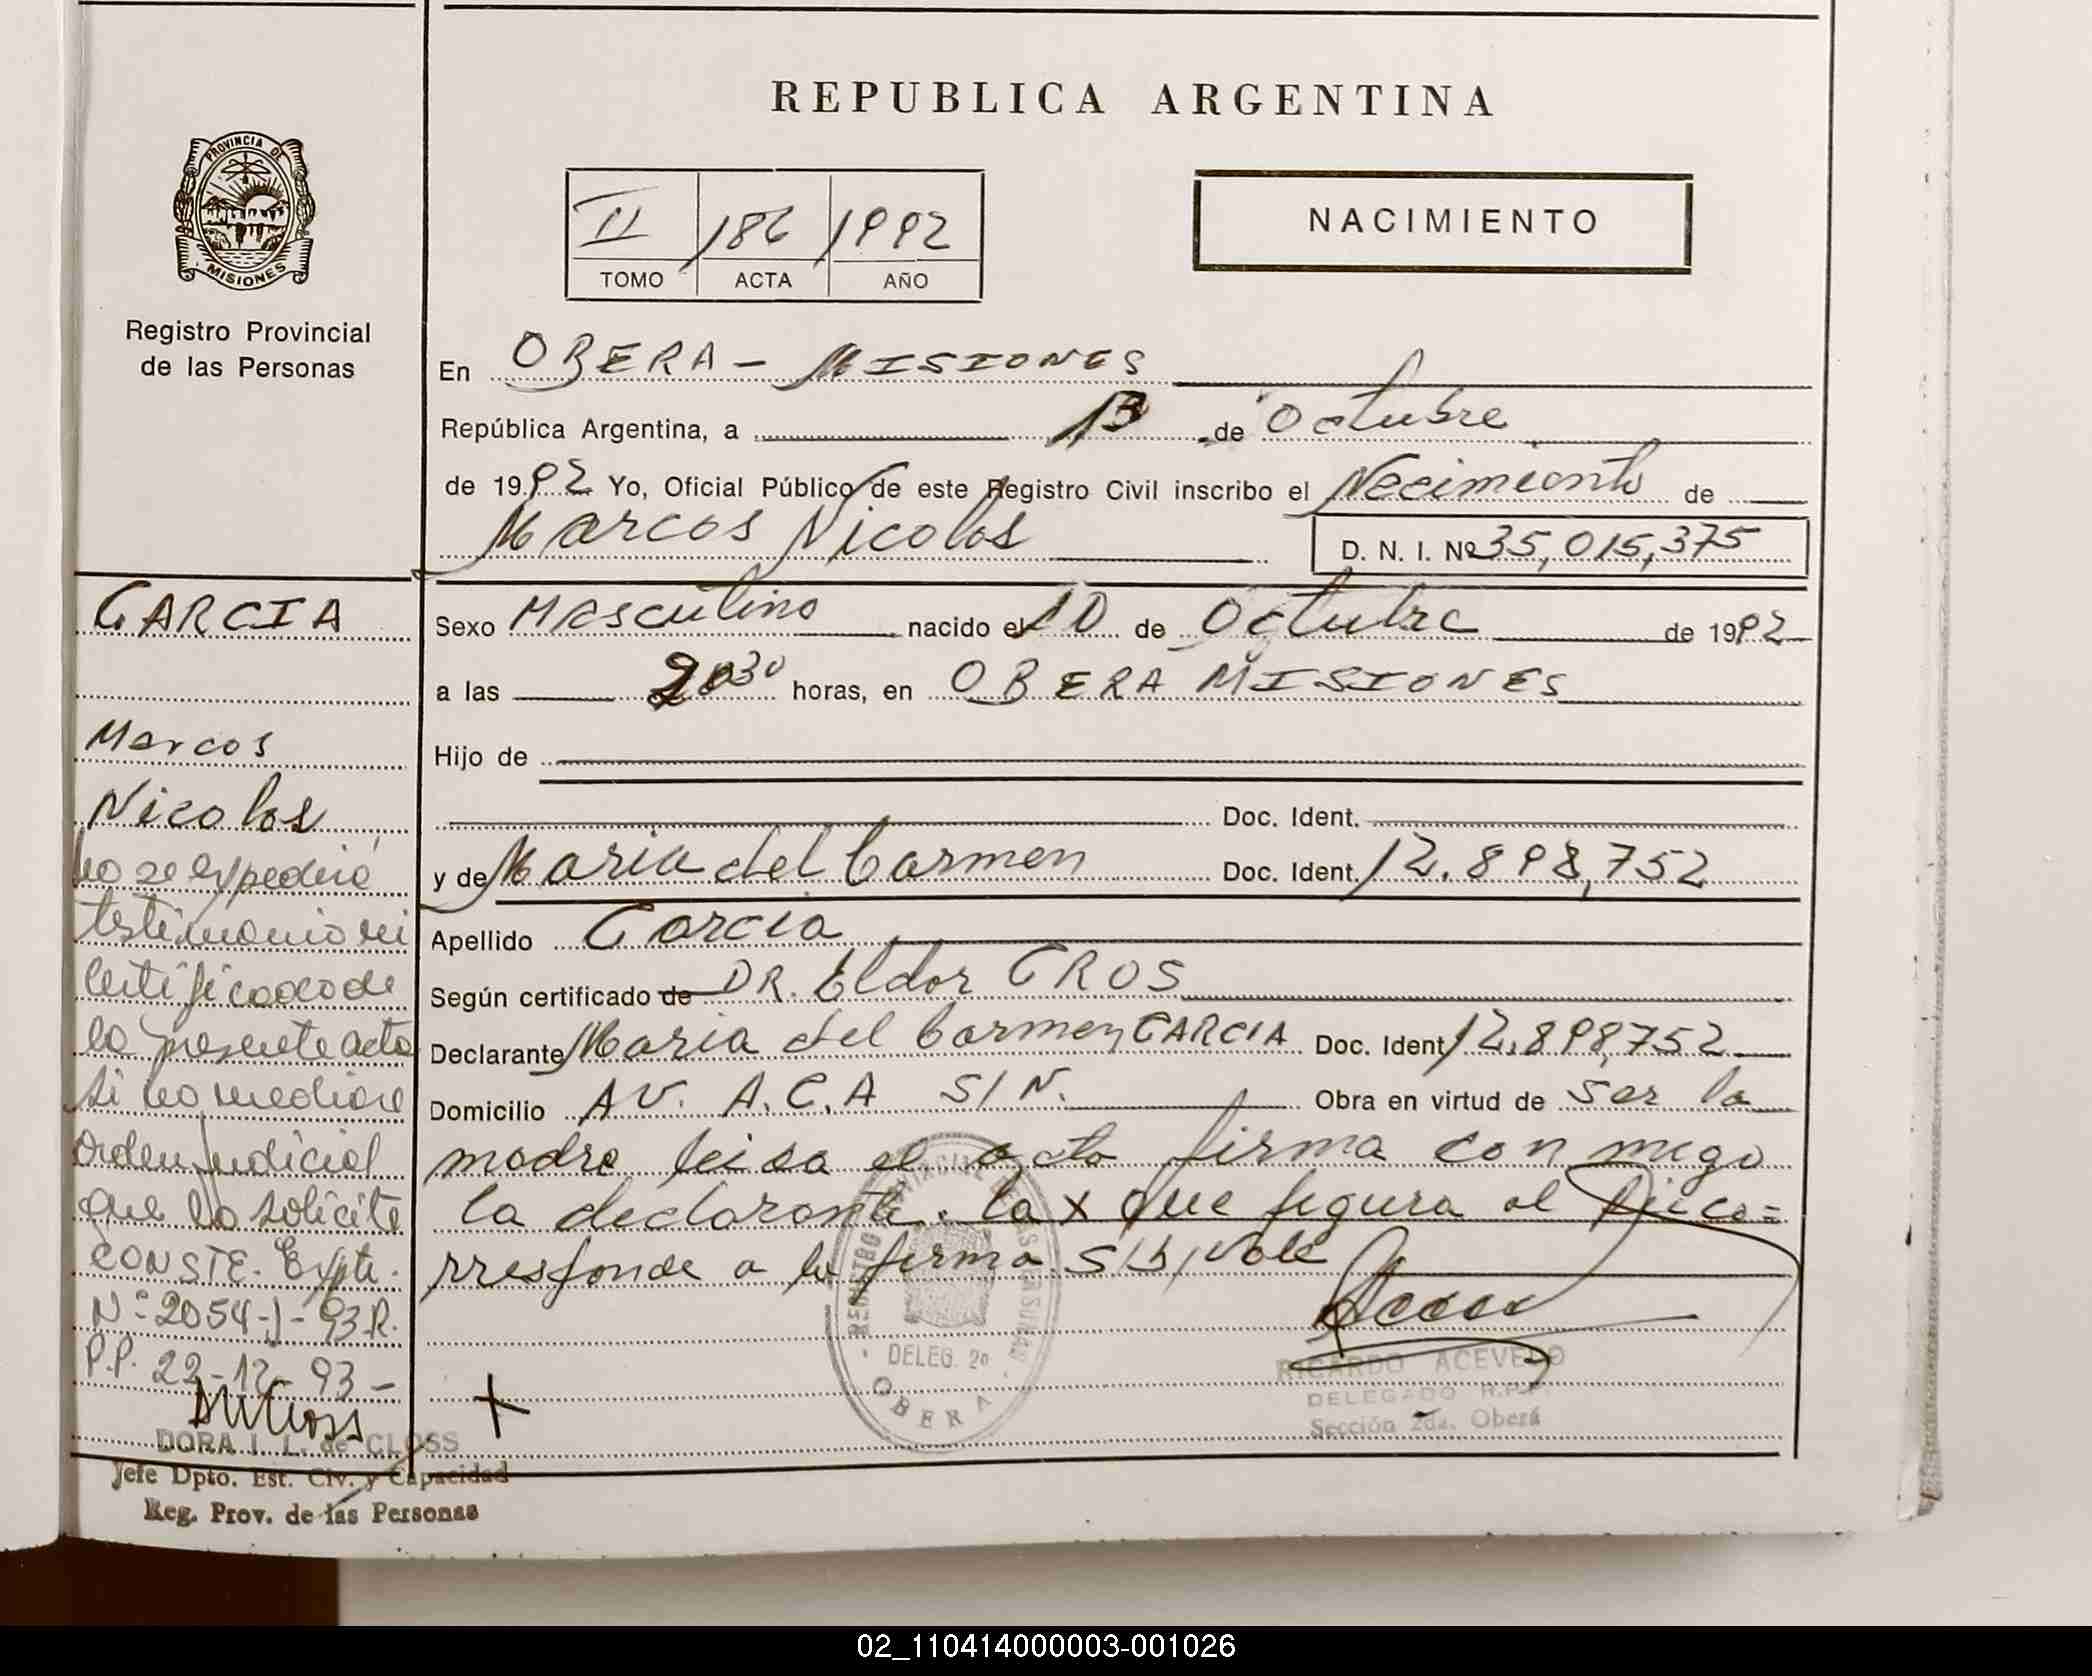 REPUBLICA ARGENTINA
PROVINCIA DE
MISIONES
Registro Provincial
de las Personas
II 186 1992
TOMO ACTA AÑO
NACIMIENTO
En OBERA - MISIONES
República Argentina, a 13 de Octubre
de 1992 Yo, Oficial Público de este Registro Civil inscribo el Nacimiento de
Marcos Nicolas
D. N. I. Nº 35,015,375
Sexo Masculino nacido el 10 de Octubre de 1992
a las 30 horas, en OBERA MISIONES
Hijo de
Doc. Ident.
y de Maria del Carmen Doc. Ident. 12.898,752
Apellido Garcia
Según certificado de DR. Eldor GROS
Declarante Maria del Carmen GARCIA Doc. Ident 12.898,752
Domicilio AV. A.C.A S/N. Obra en virtud de ser la
madre leida el acta firma con migo
la declarante. la x que figura al co=
rresponde a la firma S/b, vale
GARCIA
Marcos
Nicolas
no se expedirá
testimonio ni
certificado de
la presente acta
si no mediare
orden judicial
que lo solicite
CONSTE. Expte.
Nº 2054-J-93 R.
P.P. 22-12-93-
DORA I. L. de CLOSS
Jefe Dpto. Est. Civ. y Capacidad
Reg. Prov. de las Personas
X
DELEG. 2a
OBERA
RICARDO ACEVEDO
DELEGADO R.P.P.
Sección 2da. Oberá
02_110414000003-001026